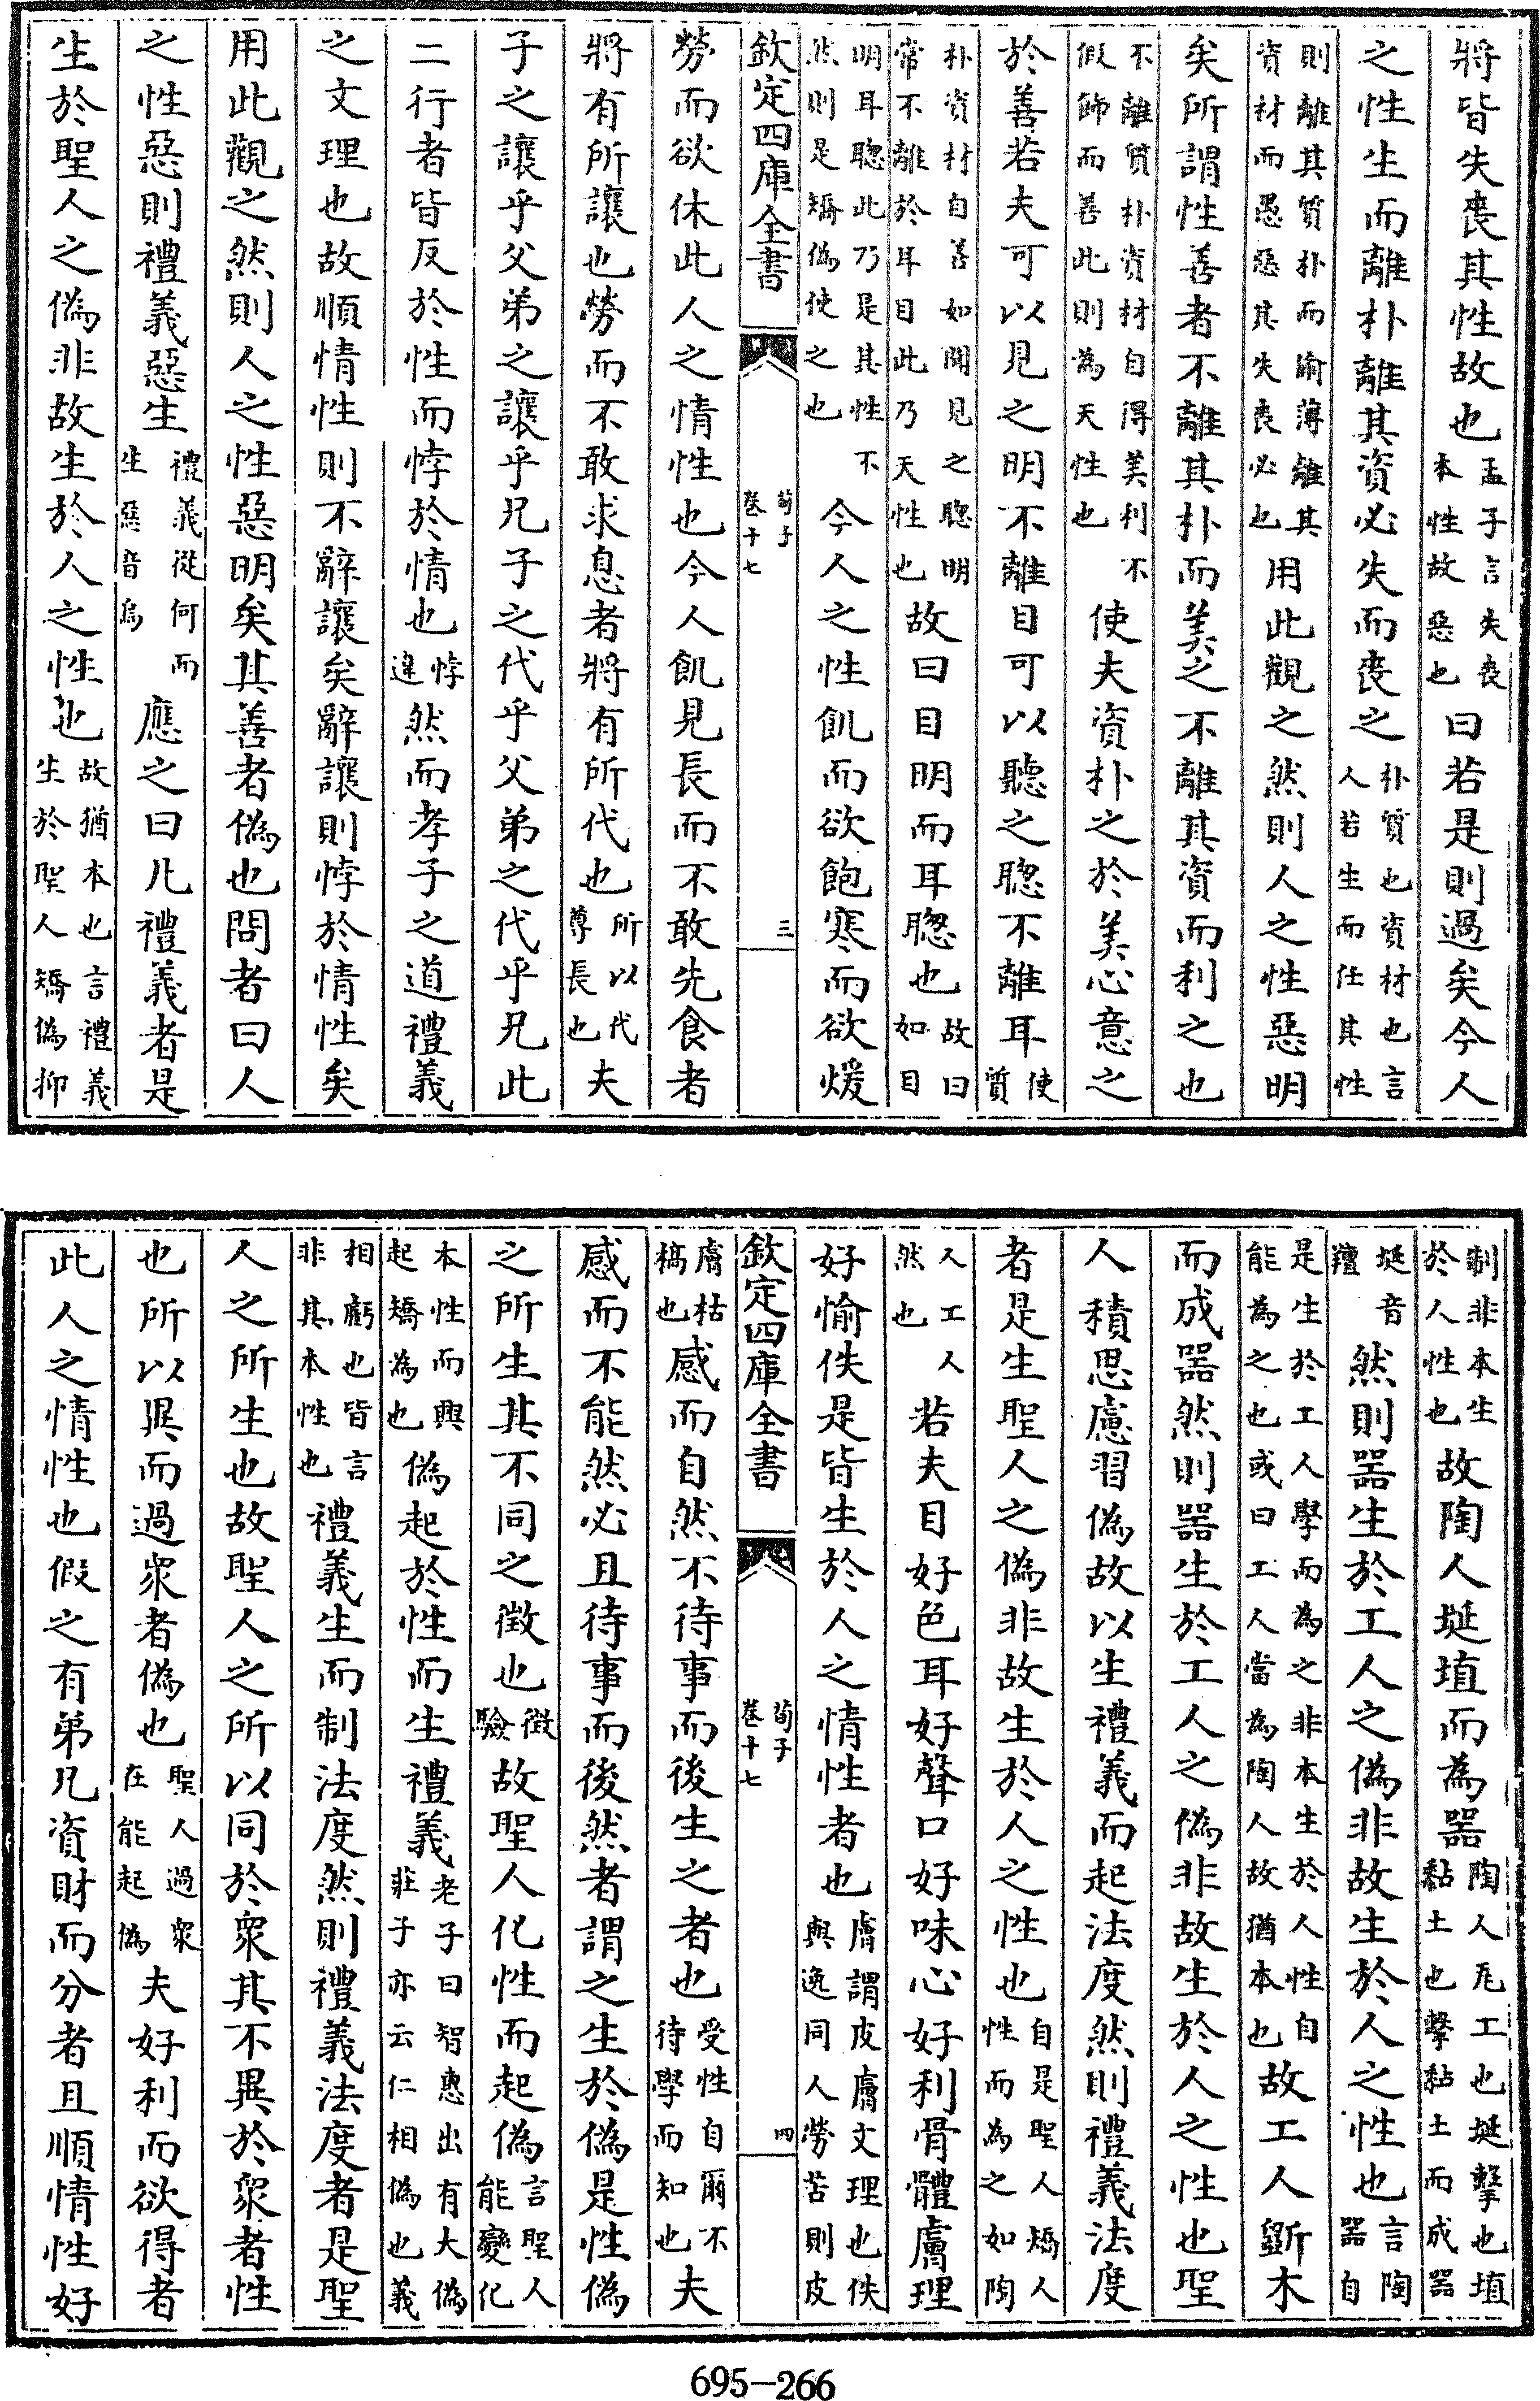 將皆失喪其性故也孟子言失喪本性故惡也曰若是則過矣今人
之性生而離朴離其資必失而喪之朴質也資材也言人若生而任其性
則離其質朴而偷薄離其資材而愚惡其失喪必也用此觀之然則人之性惡明
矣所謂性善者不離其朴而美之不離其資而利之也
不離質朴資材自得美利不假飾而善此則為天性也使夫資朴之於美心意之
於善若夫可以見之明不離目可以聽之聰不離耳使質
朴資材自善如聞見之聰明常不離於耳目此乃天性也故曰目明而耳聰也故曰如目
明耳聰此乃是其性不然則是矯偽使之也今人之性飢而欲飽寒而欲煖
欽定四庫全書 荀子 卷十七 三
勞而欲休此人之情性也今人飢見長而不敢先食者
將有所讓也勞而不敢求息者將有所代也所以代尊長也夫
子之讓乎父弟之讓乎兄子之代乎父弟之代乎兄此
二行者皆反於性而悖於情也悖違然而孝子之道禮義
之文理也故順情性則不辭讓矣辭讓則悖於情性矣
用此觀之然則人之性惡明矣其善者偽也問者曰人
之性惡則禮義惡生禮義從何而生惡音烏應之曰凡禮義者是
生於聖人之偽非故生於人之性也故猶本也言禮義生於聖人矯偽抑
制非本生於人性也故陶人埏埴而為器陶人瓦工也埏擊也埴黏土也擊黏土而成器
埏音羶然則器生於工人之偽非故生於人之性也言陶器自
是生於工人學而為之非本生於人性自能為之也或曰工人當為陶人故猶本也故工人斲木
而成器然則器生於工人之偽非故生於人之性也聖
人積思慮習偽故以生禮義而起法度然則禮義法度
者是生聖人之偽非故生於人之性也自是聖人矯人性而為之如陶
人工人然也若夫目好色耳好聲口好味心好利骨體膚理
好愉佚是皆生於人之情性者也膚謂皮膚文理也佚與逸同人勞苦則皮
欽定四庫全書 荀子 卷十七 四
膚枯槁也感而自然不待事而後生之者也受性自爾不待學而知也夫
感而不能然必且待事而後然者謂之生於偽是性偽
之所生其不同之徵也徵驗故聖人化性而起偽言聖人能變化
本性而興起矯為也偽起於性而生禮義老子曰智惠出有大偽莊子亦云仁相偽也義
相虧也皆言非其本性也禮義生而制法度然則禮義法度者是聖
人之所生也故聖人之所以同於衆其不異於衆者性
也所以異而過衆者偽也聖人過衆在能起偽夫好利而欲得者
此人之情性也假之有弟兄資財而分者且順情性好
695-266